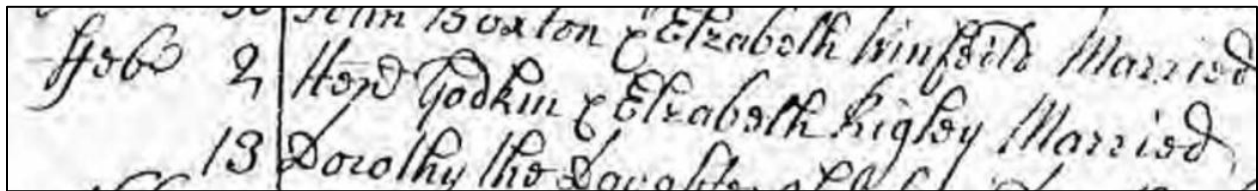 John Boxton & Elzabeth Married
ffeb 2 Godkin & Elzabeth Rigley Married
13 Dorothy the Daughter